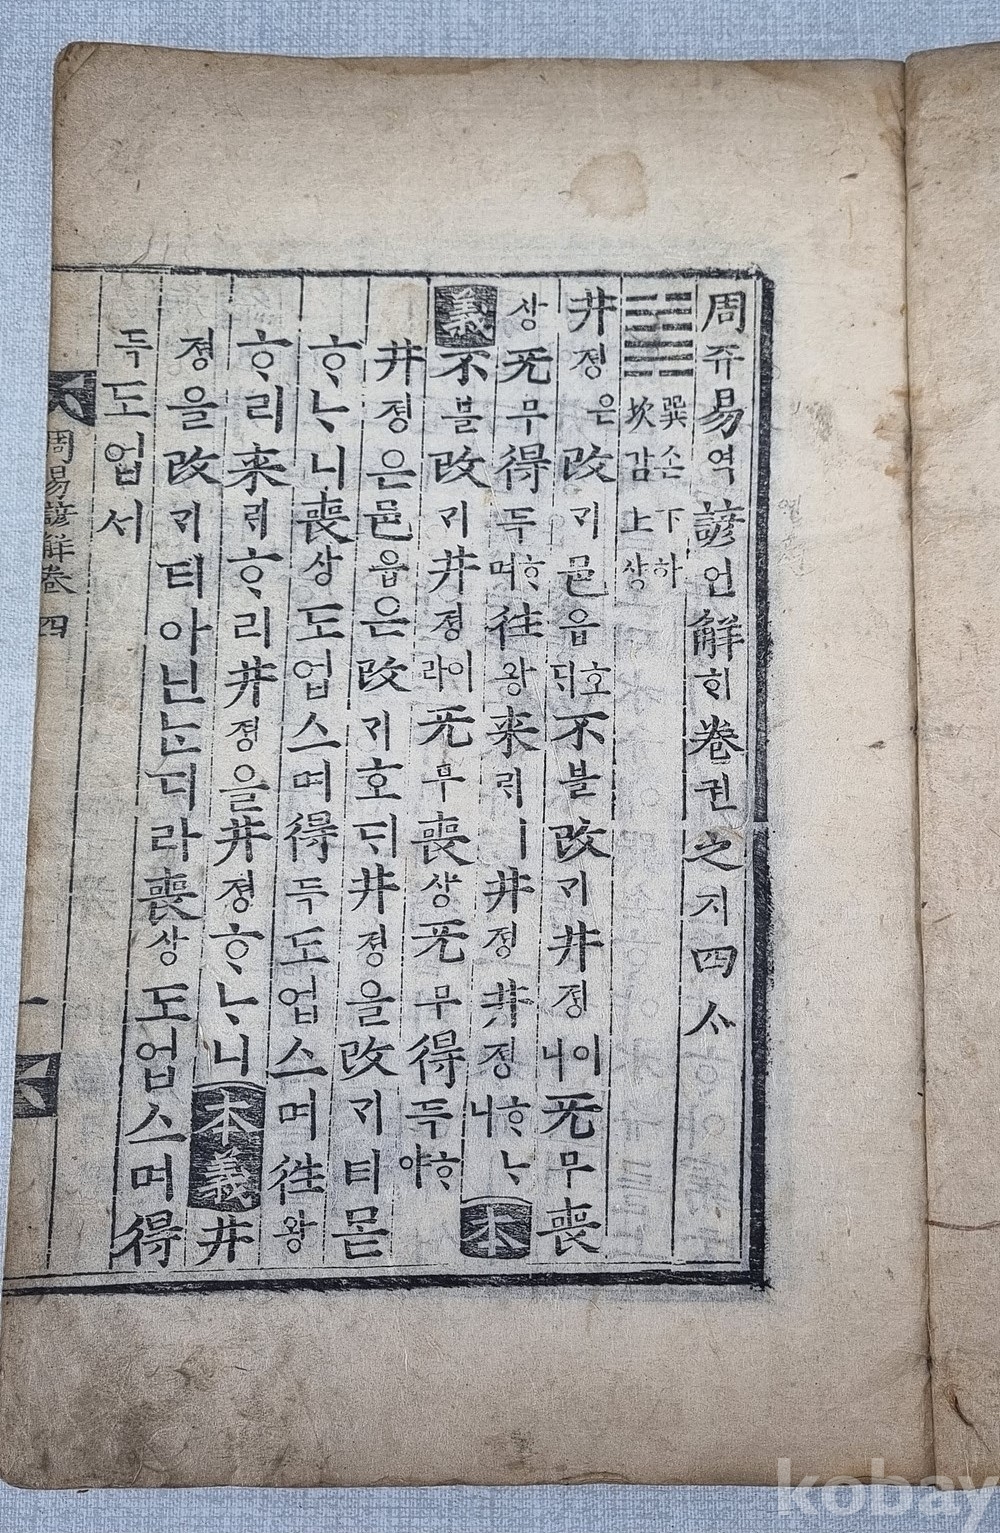 周쥬易역諺언解ᄒᆡ卷권之지四ᄉᆞ
巽손下하
坎감上샹
井졍은改ᄀᆡ邑읍호ᄃᆡ不불改ᄀᆡ井졍이니无무喪
상无무得득ᄒᆞ며往왕来ᄅᆡㅣ井졍井졍ᄒᆞᄂᆞ니本
義不불改ᄀᆡ井졍이라无무喪상无무得득ᄒᆞ야
井졍은邑읍은改ᄀᆡ호ᄃᆡ井졍을改ᄀᆡ티몯
ᄒᆞᄂᆞ니喪상도업스며得득도업스며往왕
ᄒᆞ리来ᄅᆡᄒᆞ리井졍을井졍ᄒᆞᄂᆞ니本義井
졍을改ᄀᆡ티아닌ᄂᆞᆫ디라喪상도업스며得
득도업서
周易諺解卷四 一
kobay